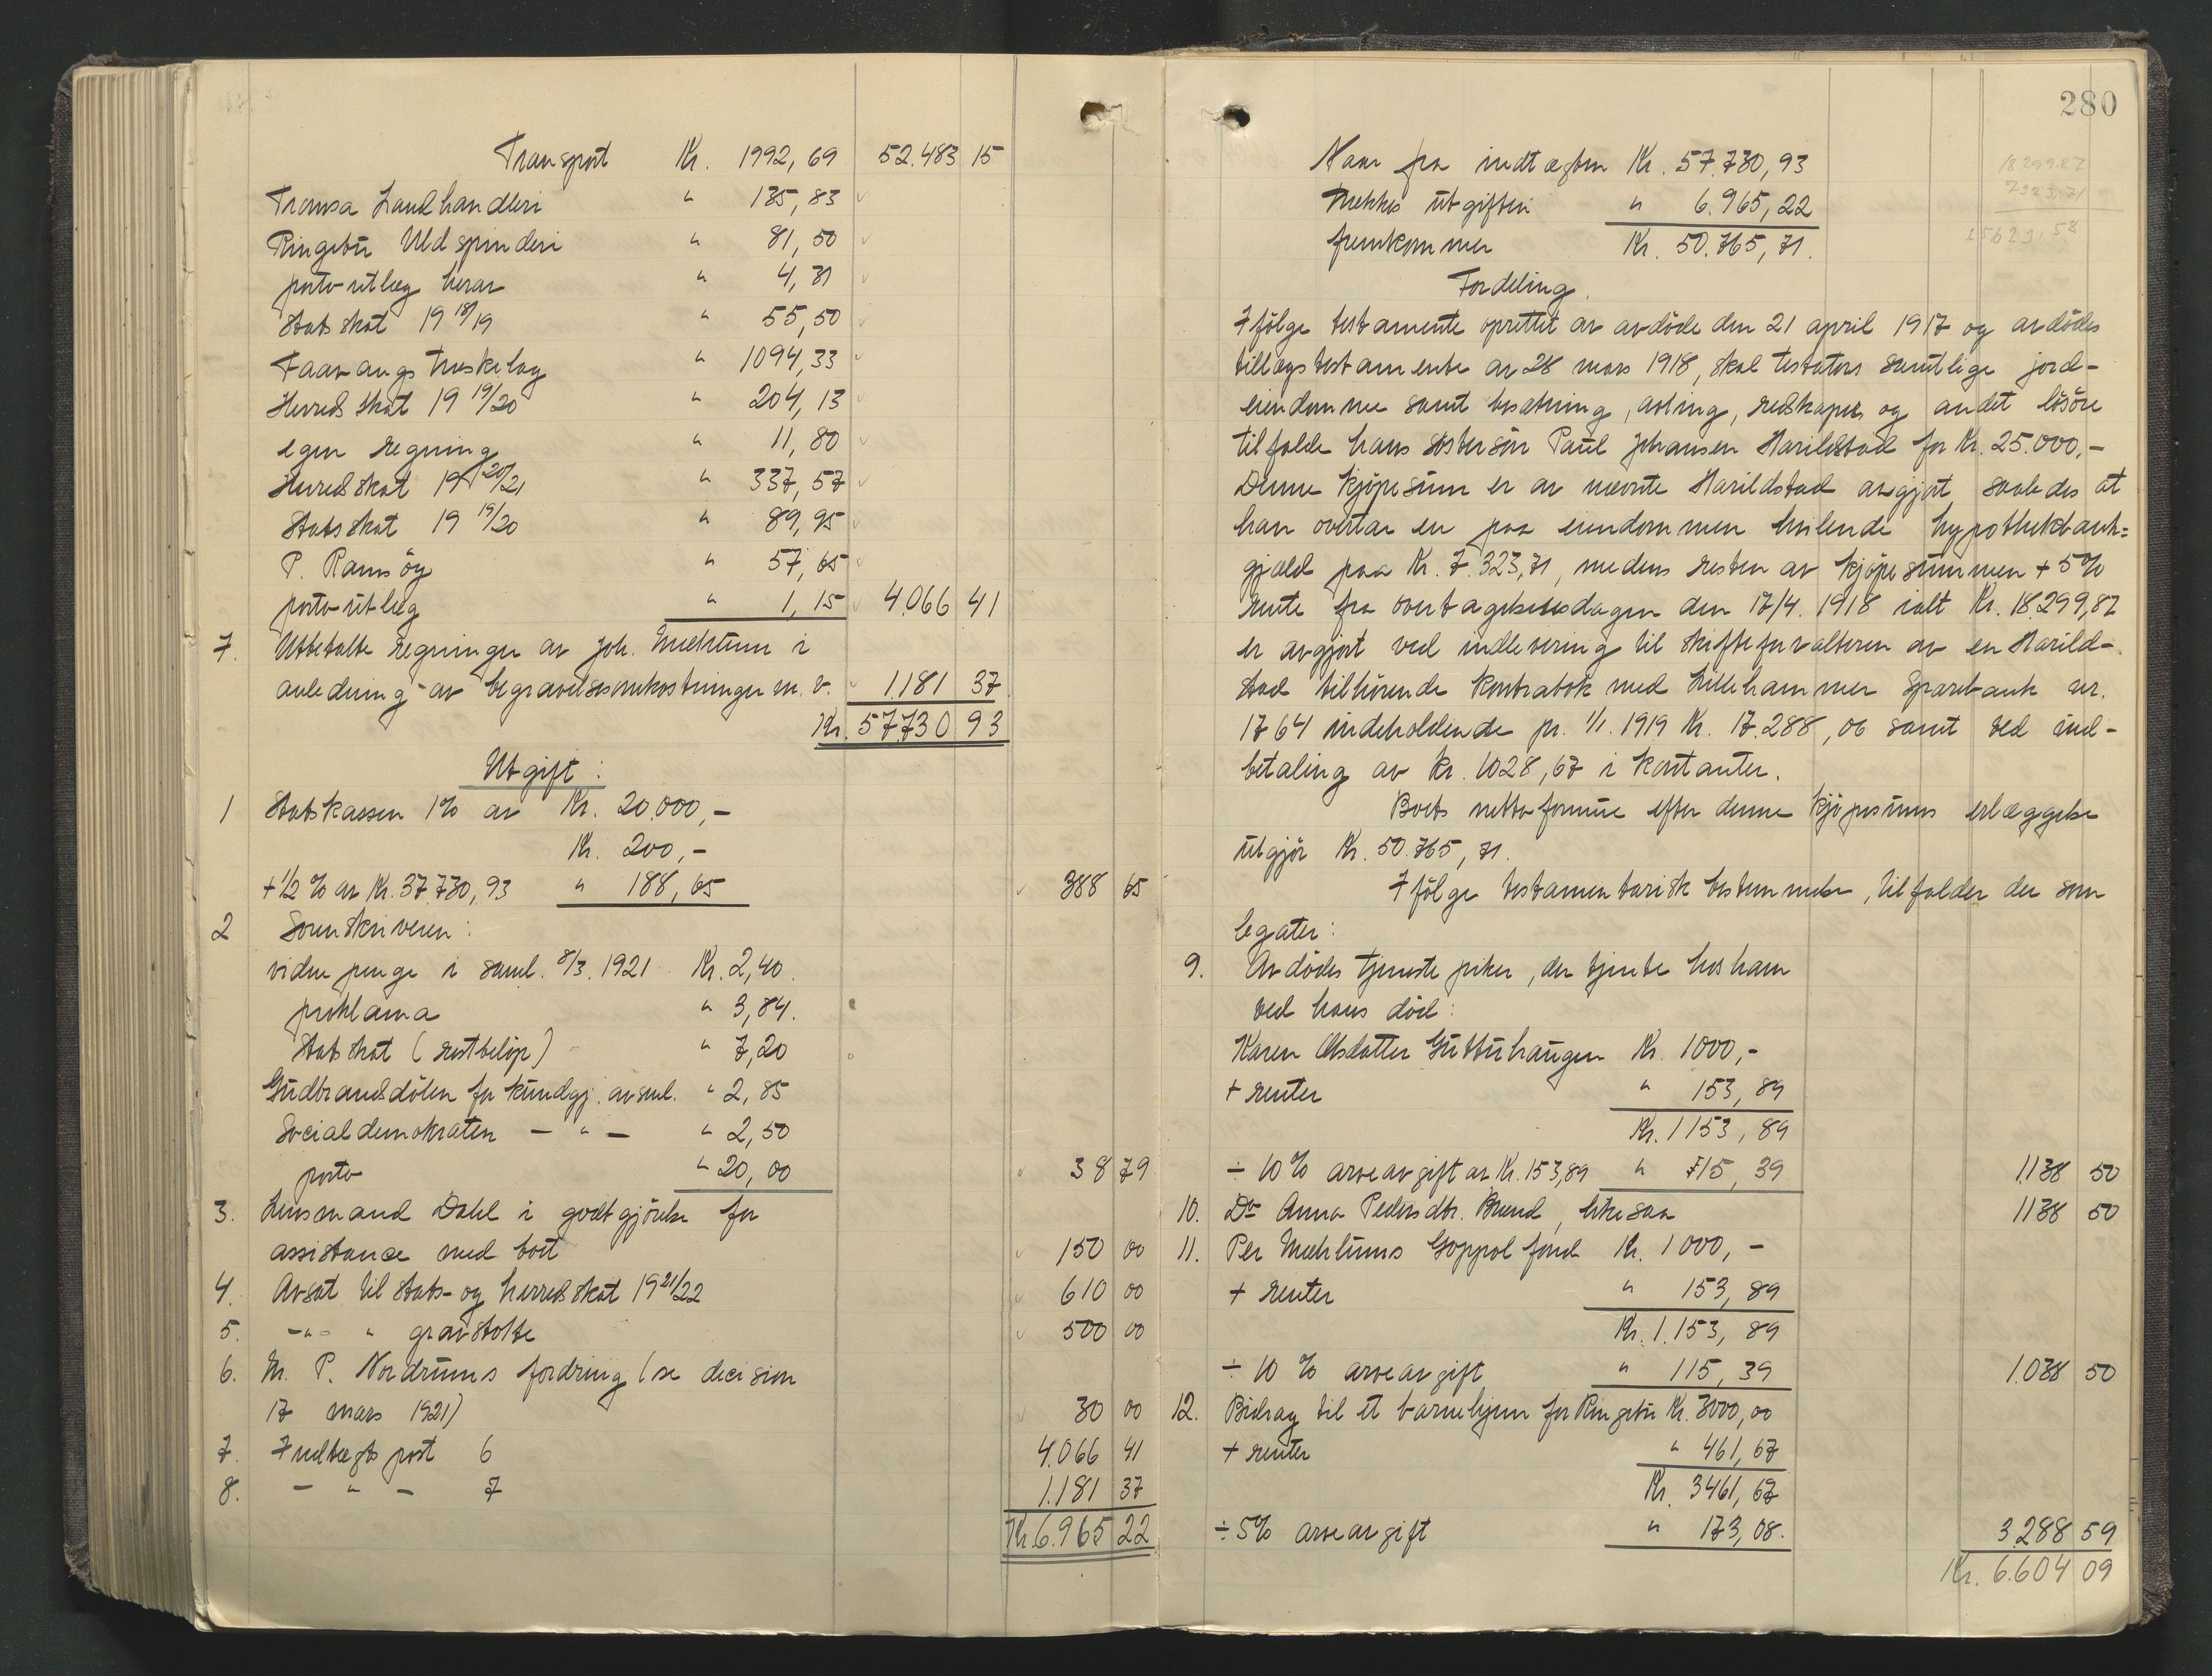 Transport Kr. 1992,69 52.483 15
Tromsa Landhandleri " 135,83
Ringebu Uldspinderi " 81,50
porto utlæg herav " 4,31
Statsskat 19 18/19 " 55,50
Faavangs træskelag " 1094,33
Herredsskat 19 19/20 " 204,13
egen regning " 11,80
Herredsskat 19 20/21 " 337,57
Statsskat 19 19/20 " 89,95
P. Ramsöy " 57,65
porto utlæg " 1,15 4.066 41
7. Utbetalte regninger av Joh. Mæhlum i
anledning av begravelsesomkostninger m. v. 1.181 37
Kr. 57.730 93
Utgift:
1 Statskassen 1% av Kr. 20.000,-
Kr. 200,-
+ 1/2 % av Kr. 37.730,93 " 188,65 388 65
2 Sorenskriveren:
vidne penge i saml. 8/3. 1921 Kr. 2,40.
proklama " 3,84.
Statsskat (restbelöp) " 7,20
Gudbrandsdölen for kundgj. av saml. " 2,85
Socialdemokraten - " - " 2,50
porto " 20,00 38 79
3. Lensmand Dahl i godtgjörelse for
assistance med boet 150 00
4. Avsat til stats- og herredsskat 19 21/22 610 00
5. -"- " gravstötte 500 00
6. M. P. Nordrums fordring (se decision
17 mars 1921) 30 00
7. Indtægts post 6 4.066 41
8. - " - 7 1.181 37
Kr. 6.965 22
280
Naar fra indtægten Kr. 57.730,93
trækkes utgiften " 6.965,22
fremkommer Kr. 50.765,71.
18299.87
7323,71
25623,58
Fordeling.
Ifölge testamente oprettet av avdöde den 21 april 1917 og avdödes
tillægstestamente av 28 mars 1918, skal testators samtlige jord-
eiendomme samt besætning, avling, redskaper og andet lösöre
tilfalde hans söstersön Paul Johansen Harildstad for Kr. 25.000,-
Denne kjöpesum er av nævnte Harildstad avgjort saaledes at
han overtar en paa eiendommen hvilende hypothekbank-
gjæld paa Kr. 7.323,71, medens resten av kjöpesummen + 5%
rente fra overtagelsesdagen den 17/4. 1918 ialt Kr. 18.299,87
er avgjort ved indlevering til skifteforvalteren av en Harild-
stad tilhörende kontrabok med Lillehammer Sparebank nr.
1764 indeholdende pr. 1/1. 1919 Kr. 17.288,06 samt ved ind-
betaling av Kr. 1028,67 i kontanter.
Boets nettoformue efter denne kjöpesums erlæggelse
utgjör Kr. 50.765,71.
Ifölge testamentarisk bestemmelse, tilfalder der som
legater:
9. Avdödes tjenestepiker, der tjente hos ham
ved hans död:
Karen Olsdatter Gutuhaugen Kr. 1000,-
+ renter " 153,89
Kr. 1153,89
÷ 10% arveavgift av Kr. 153,89 " 15,39 1.138 50
10. Do Anna Pedersdtr. Brænd, likesaa 1138 50
11. Per Mæhlums Goppol fond Kr. 1000,-
+ renter " 153,89
Kr. 1.153,89
÷ 10 % arveavgift " 115,39 1.038 50
12. Bidrag til et barnehjem for Ringebu Kr. 3000,00
+ renter " 461,67
Kr. 3461,67
÷ 5% arveavgift " 173,08. 3.288 59
Kr. 6.604 09